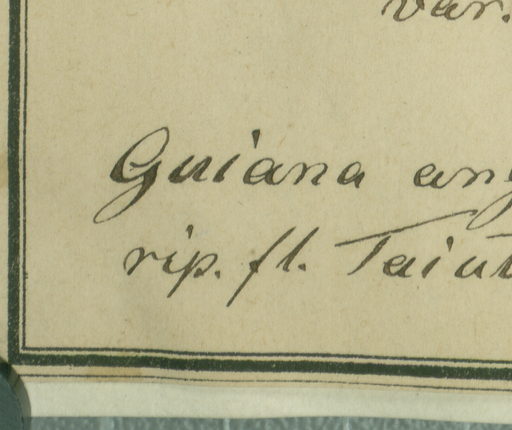 var.
Guiana ang
rip. fl. Taiut